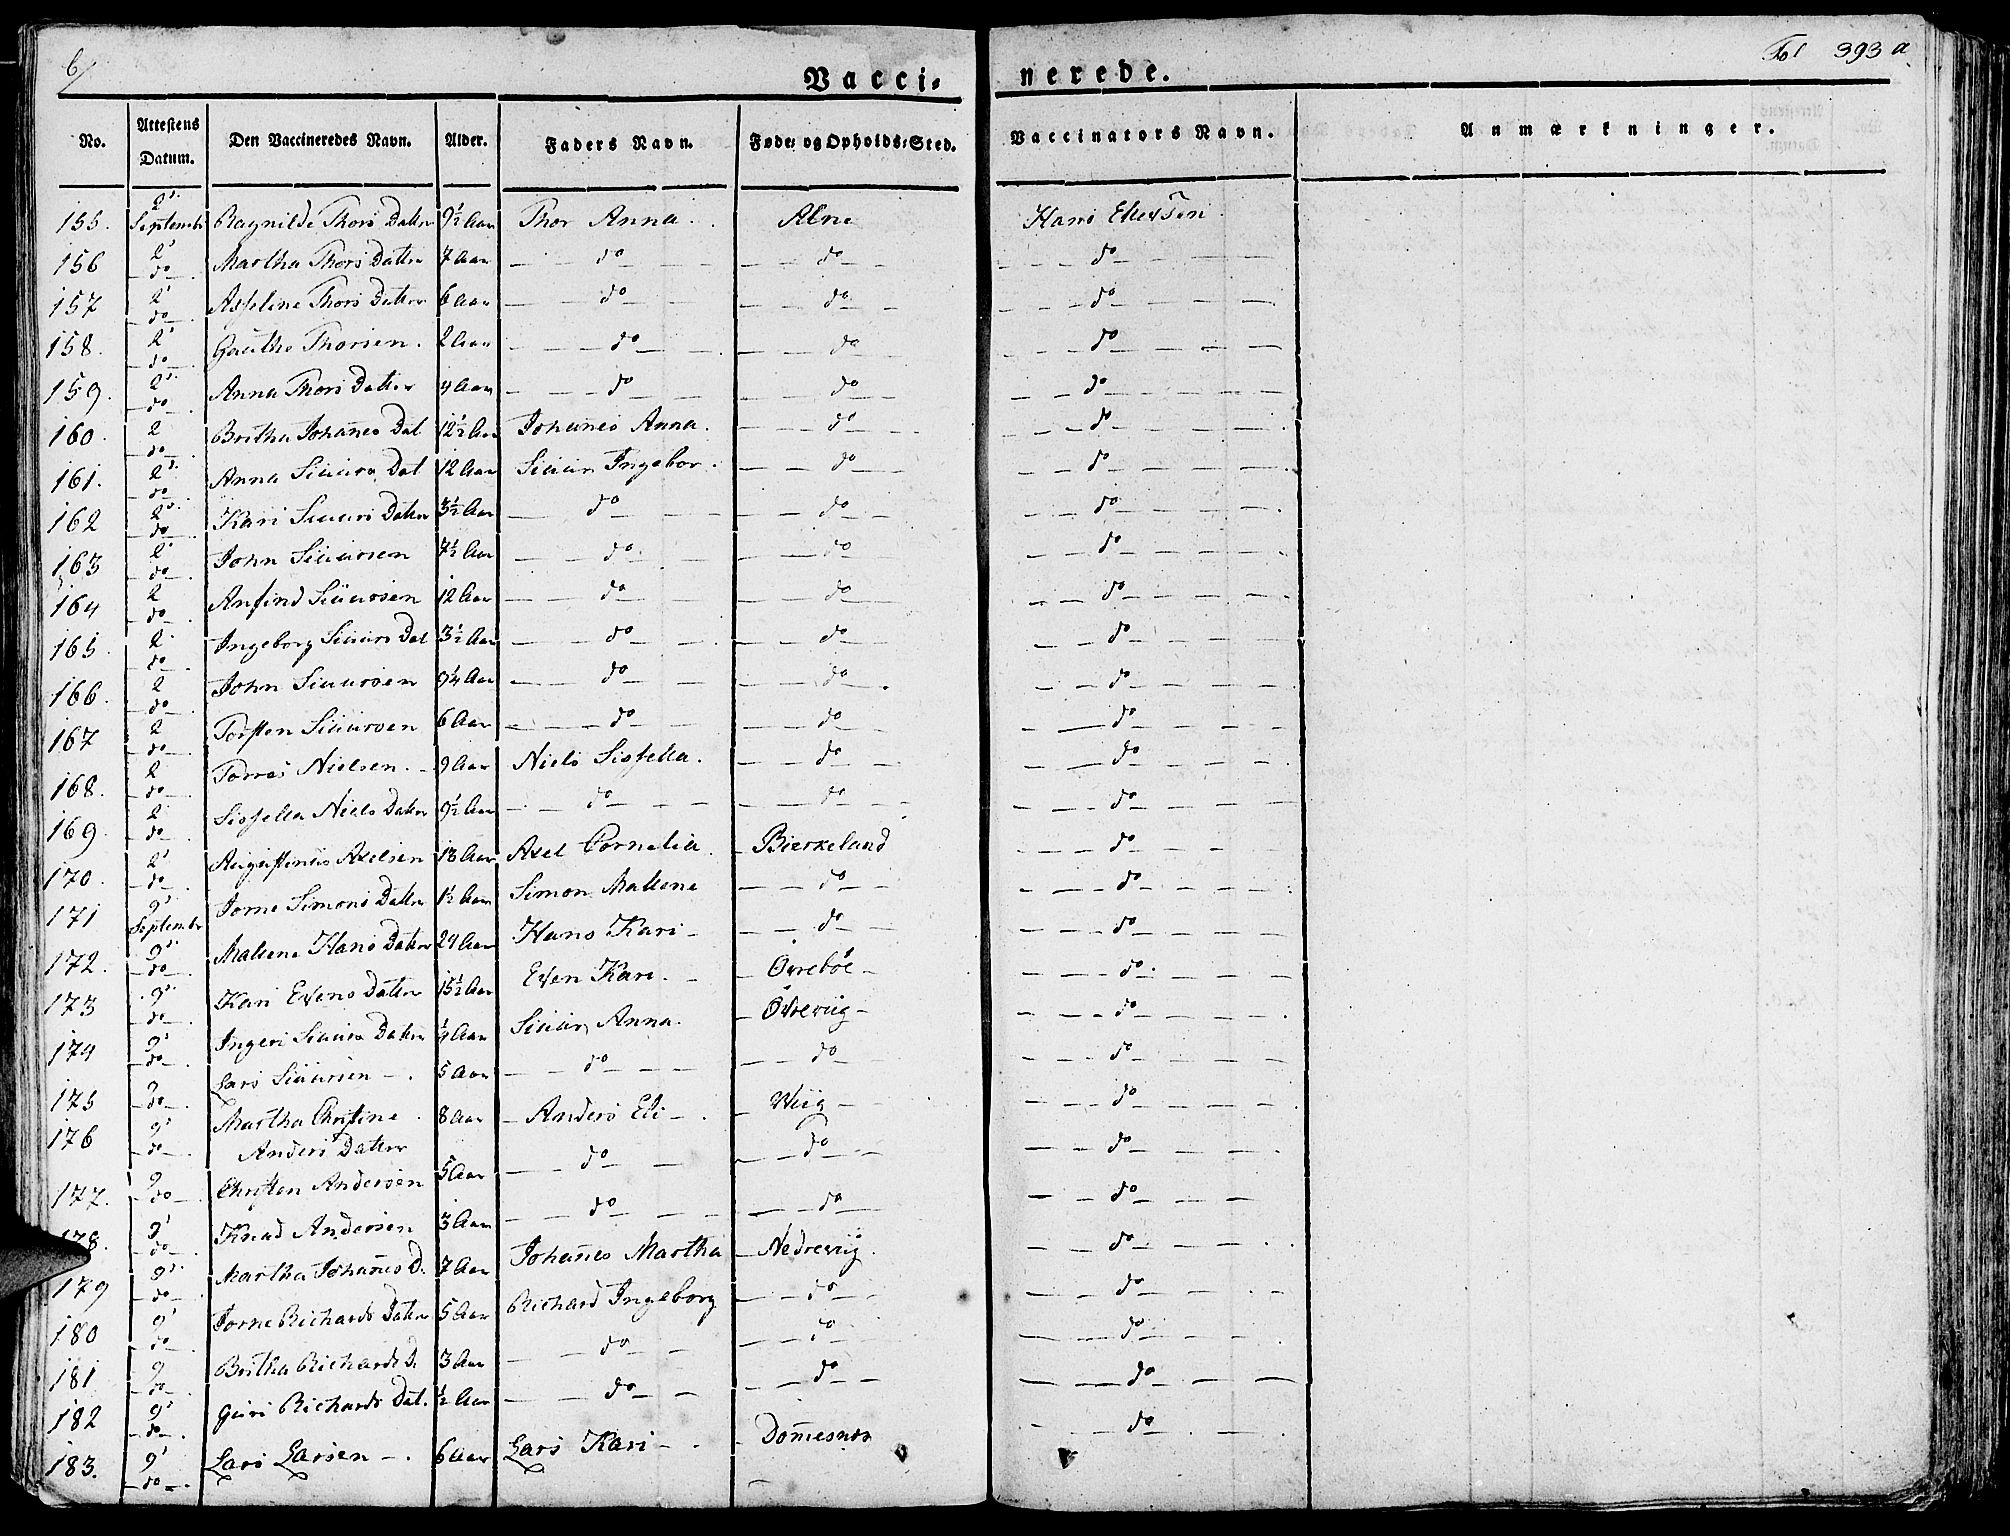 6/
Fol 393 a
Vacci- nerede.
No. Attestens Datum. Den Vaccineredes Navn. Alder. Faders Navn. Føde- og Opholds-Sted. Vaccinators Navn. Anmærkninger.
155. 2' Septembr Ragnilde Thors Datter 9½ Aar Thor Anna. Hans
156 2' do Martha Thors Datter 7 Aar do do do
157 2' do Asseline Thors Datter 6 Aar do do do
158. 2' do Gauthe Thorsen. 2 Aar do do do
159. 2' do Anna Thors Datter 4 Aar do do do
160. 2 do Britha Johañes Dat 12½ Aar Johañes Anna. do do
161. 2' do Anna Siuurs Dat 12 Aar Siuur Ingebor. do do
162 2' do Kari Siuurs Datter 3½ Aar do do do
163 2' do John Siuursen 7½ Aar do do do
164 2 do Anfind Siuursen 12 Aar do do do
165 2 do Ingeborg Siuurs Dat 3½ Aar do do do
166. 2 do John Siuursen 9¼ Aar do do do
167 2 do Torsten Siuursen 6 Aar do do do
168. 2 do Torres Nielsen. 9 Aar Niels Sissella. do do
169. 2 do Sissella Niels Datter 9½ Aar do do do
170. 2' do Augustinus Axelsen 13 Aar Axel Cornelia. Bierkeland do
171 9' Septembr Jorne Simons Datter 1½ Aar Simon Malene do do
172. 9' do Malene Hans Datter 24 Aar Hans Kari do do
173 9' do Kari Evens Datter 15½ Aar Even Kari. Øvrebøe do
174 9' do Ingeri Siuurs Datter ¼ Aar Siuur Anna. Øvreviig do
175 9 do Lars Siuursen 5 Aar do do do
176 9' do Martha Christine 8 Aar Anders Eli Wiig do
Anders Datter
177. 9 do Christen Andersen 5 Aar do do do
178. 9' do Knud Andersen 3 Aar do do do
179 9' do Martha Johañes D. 7 Aar Johañes Martha Nedreviig. do
180 9' do Jorne Richards Datter 5 Aar Richard Ingeborg do do
181 9 do Britha Richards D. 3 Aar do do do
182 9' do Guri Richards Dat. ½ Aar do do do
183. 9' do Lars Larsen 6 Aar Lars Kari Dom̃esnes do